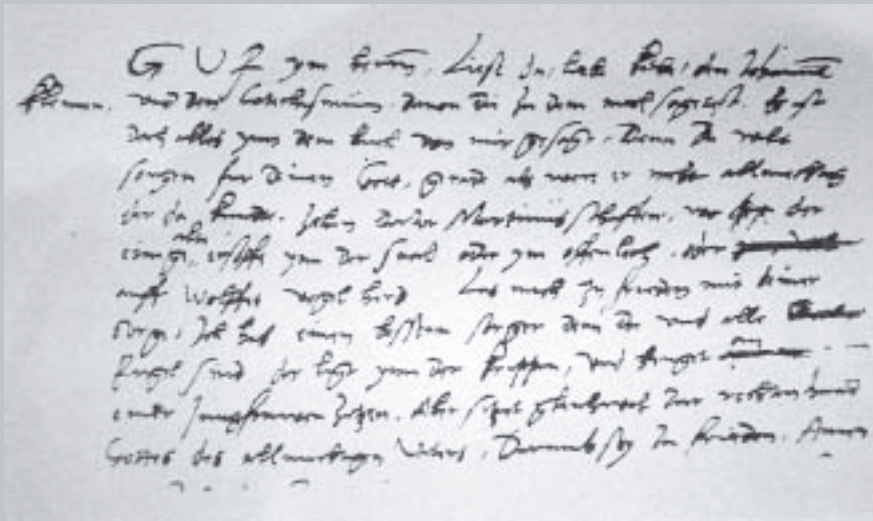 G U F ym herrn. Liese du, liebe Kethe, den Johannem
kleinen. und den Catechismum, davon du zu dem mal sagetest. Es ist
doch alles ynn dem buch von mir gesagt. Denn du wilt
sorgen fur deinen Gott, gerade als were er nicht allmechtig
der da kundte zehen Doctor Martinus schaffen, wo der
einige alte ersoffe ynn der Saal oder ym ofenloch, oder
auff Wolffes vogelherd Las mich zu frieden mit deiner
sorge, Ich hab einen bessern sorger denn du und alle
Engel sind, der ligt ynn der krippen, und henget an
einer Jungfrawen zitzen. Aber sitzet gleichwol zur rechten hand
Gottes des allmechtigen Vaters. Darumb sey zu frieden. Amen